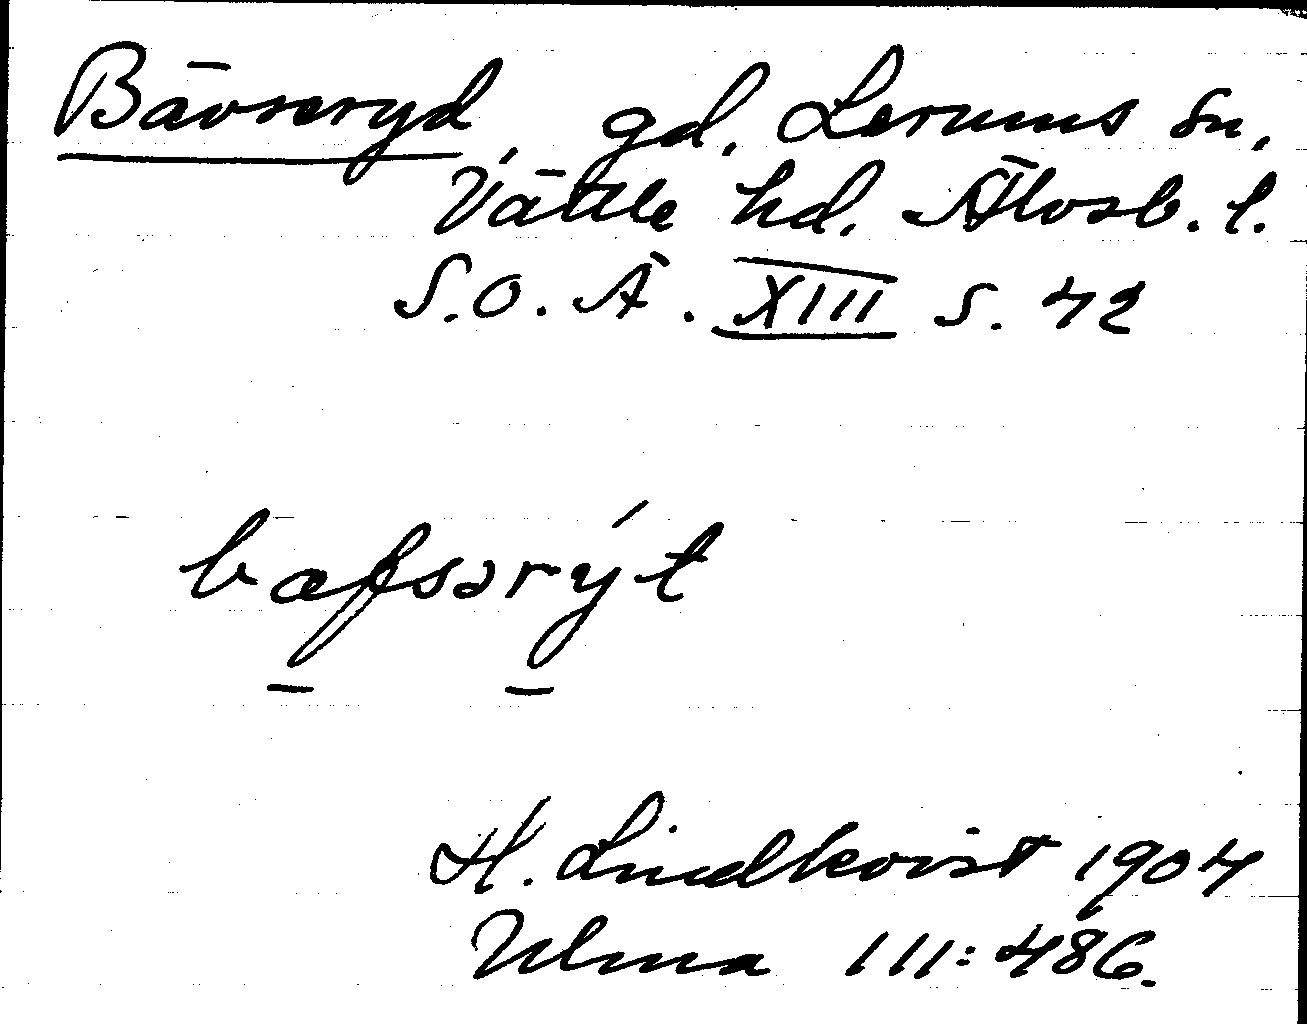 Bävseryd, gd. Lerums sn,
Vättle hd. Älvsb. l.
S.O.Ä. XIII s. 42
bæfsərýt
H. Lindkvist 1904
Ulma 111:486.